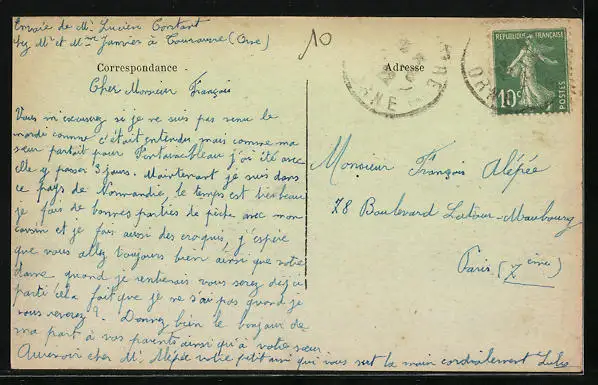 Envoie de Mr Lucien Contant
chez Mr et Mme Janvier à Tourouvre (Orne)
10
Correspondance
Adresse
REPUBLIQUE FRANÇAISE
10c
POSTES
ORNE
Cher Monsieur François
Vous m'excuserez si je ne suis pas venu le
mardi comme c'était entendu, mais comme ma
sœur partait pour Fontainebleau j'ai été avec
elle y passer 3 jours. Maintenant je suis dans
ce pays de Normandie, le temps est très beau
je fais de bonnes parties de pêche avec mon
cousin et je fais aussi des croquis, j'espère
que vous allez toujours bien ainsi que votre
dame quand je rentrerais vous serez déjà
parti cela fait que je ne s'ai pas quand je
vous reverez?. Donnez bien le bonjour de
ma part à vos parents ainsi qu'à votre sœur
Aurevoir cher Mr Alépée votre petit ami qui vous sert la main cordialement Lulu
Monsieur François Alépée
78 Boulevard Latour-Maubourg
Paris (7ème)